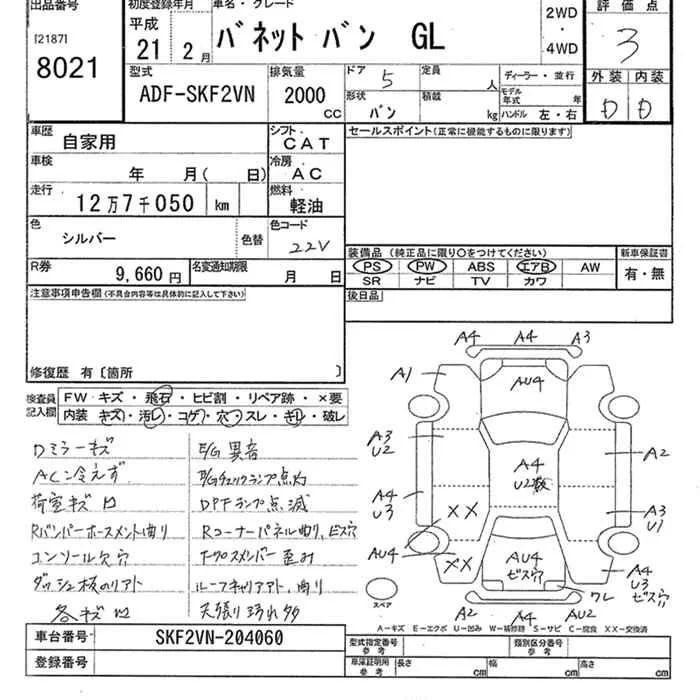 出品番号
[2187]
8021
初度登録年月
平成 21 年 2 月
車名・グレード
バネット バン GL
2WD
・
4WD
評価点
3
外装 内装
D D
型式
ADF-SKF2VN
排気量
2000 cc
ドア 5
定員 人
形状 バン
積載 kg
ディーラー・並行
モデル年式 年
ハンドル 左・右
車歴 自家用
シフト CAT
車検 年 月( 日)
冷房 AC
走行 12万7千050 km
燃料 軽油
色 シルバー 色替
色コード 22V
R券 9,660 円
名変通知期限 月 日
セールスポイント(正常に機能するものに限ります)
装備品(純正品に限り○をつけてください)
PS PW ABS エアB AW
SR ナビ TV カワ
新車保証書
有・無
後日品
注意事項申告欄(不具合内容等は具体的に記入して下さい)
修復歴 有〔箇所 〕
検査員記入欄
FW キズ・飛石・ヒビ割・リペア跡・×要
内装 キズ・汚レ・コゲ・穴・スレ・キレ・破レ
Dミラーキズ
E/G異音
AC冷えず
E/Gチェックランプ点灯
荷室キズ凹
DPFランプ点滅
Rバンパーホースメント曲り
Rコーナーパネル曲り、ビス穴
コンソール欠穴
Tクロスメンバー歪み
ダッシュ板のリアト
ルーフキャリアアト、曲り
各キズ凹
天張り汚れ多
A4 A4 A3
A1
AU4
A3
U2
A2
A4
U2多数
A4
U3
××
A3
U1
AU4
××
AU4
ビス穴
A4
U3
ビス穴
ワレ
スペア
A2 A4 AU2
A-キズ E-エクボ U-凹み W-補修跡 S-サビ C-腐食 XX-交換済
車台番号 SKF2VN-204060
登録番号
型式指定番号 参考
類別区分番号 参考
車庫証明用 参考
長さ cm 幅 cm 高さ cm